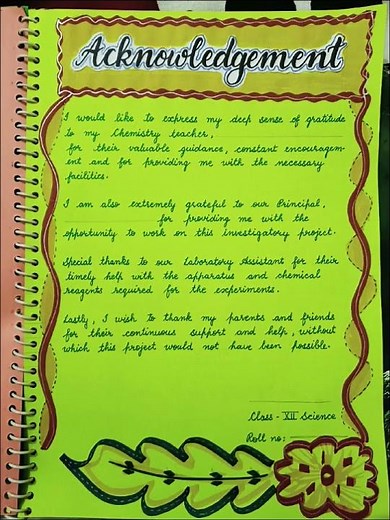 Acknowledgement
I would like to express my deep sense of gratitude
to my Chemistry teacher,
for their valuable guidance, constant encouragem-
ent and for providing me with the necessary
facilities.
I am also extremely grateful to our Principal,
for providing me with the
opportunity to work on this investigatory project.
Special thanks to our Laboratory Assistant for their
timely help with the apparatus and chemical
reagents required for the experiments.
Lastly, I wish to thank my parents and friends
for their continuous support and help, without
which this project would not have been possible.
Class - XII Science
Roll no: